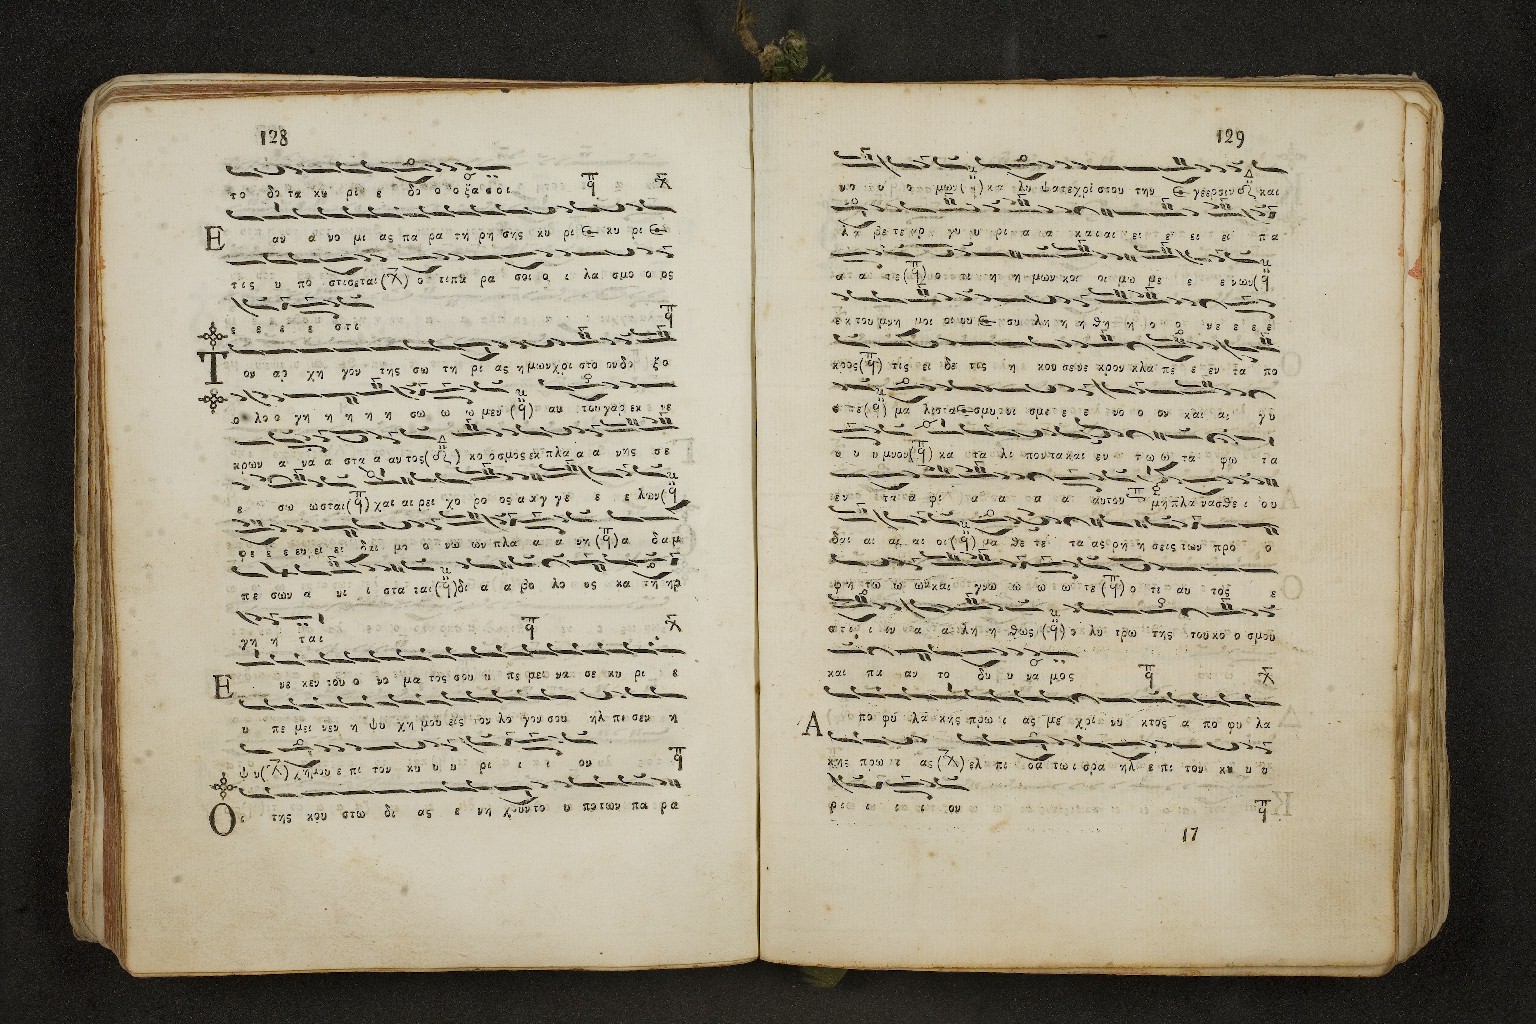 128
το δο τα κυ ρι ε δο ο ο ξα σοι
Ε αν α νο μι ας πα ρα τη ρη σης κυ ρι ε κυ ρι ε
τις υ πο στισεται ο τιπα ρα σοι ο ι λα σμο ο ος
ε ε ε ε ε στι
Τ ον αρ χη γον της σω τη ρι ας η μωνχρι στο
ο λο ο γη η η η η σω ω ω μεν αυ τουγαρ εκ νε
κρων α να α στα α αν τος κο ο σμος εκ πλα α α νης σε
ε σω ωσται χαι αι ρει χο ρο ος α αγ γε ε ε λων
δαι μο ο νω ων πλα α α νη α δαμ
πε σων α νι ι στα ται δι α α βο λο ος κα τη ηρ
γη η ται
Ε νε κεν του ο νο μα τος σου υ πε μει να σε κυ ρι ε
υ πε μει νεν η ψυ χη μου εις τον λο γον σου ηλ πι σεν η
ψυ χημου ε πι τον κυ υ υ ρι ι ι ι ον
Ο ι της κου στω δι ας ε νη χουντο υ ποτων πα ρα
129
νο ο μων κα λυ ψατεχρι στου την ε γεερσιν και
λα βε τε αρ γυ υ ρι α α και αι ει ει ει ει πα
α α τε ο τι η η μων κοι οι μω με ε ε νων
εκ του μνη μει οι ου ε συ λη η η θη η ο ο νε ε ε ε
κρος τις ει δε τις η κου σενε κρον κλα πε ε εν τα πο
ο τε μα λιστα ε σμυρνι σμε ε ε ε νο ο ον και αι γυ
υ υ υ μνον κα τα λι ποντακαι εν τ ω ω τα φω τα
εν τα α φι α α α α αυτου μη πλα νασθε ι ου
δαι αι αι αι οι μα θε τε τα ας ρη η σεις των προ ο
φη τω ω ωνκαι γνω ω ω ω ω τε ο τι αυ τος ε
στι ι ιν α α λη η θως ο λυ τρω της τουκο ο σμου
και πα αν το δυ υ να μος
Α πο φυ λα κης πρω ι ας με χρι νυ κτος α πο φυ λα
κης πρω ι ας ελ πι σα τω ισρα ηλ ε πι τον κυ υ υ
ρι ι ι ι ι ον
17